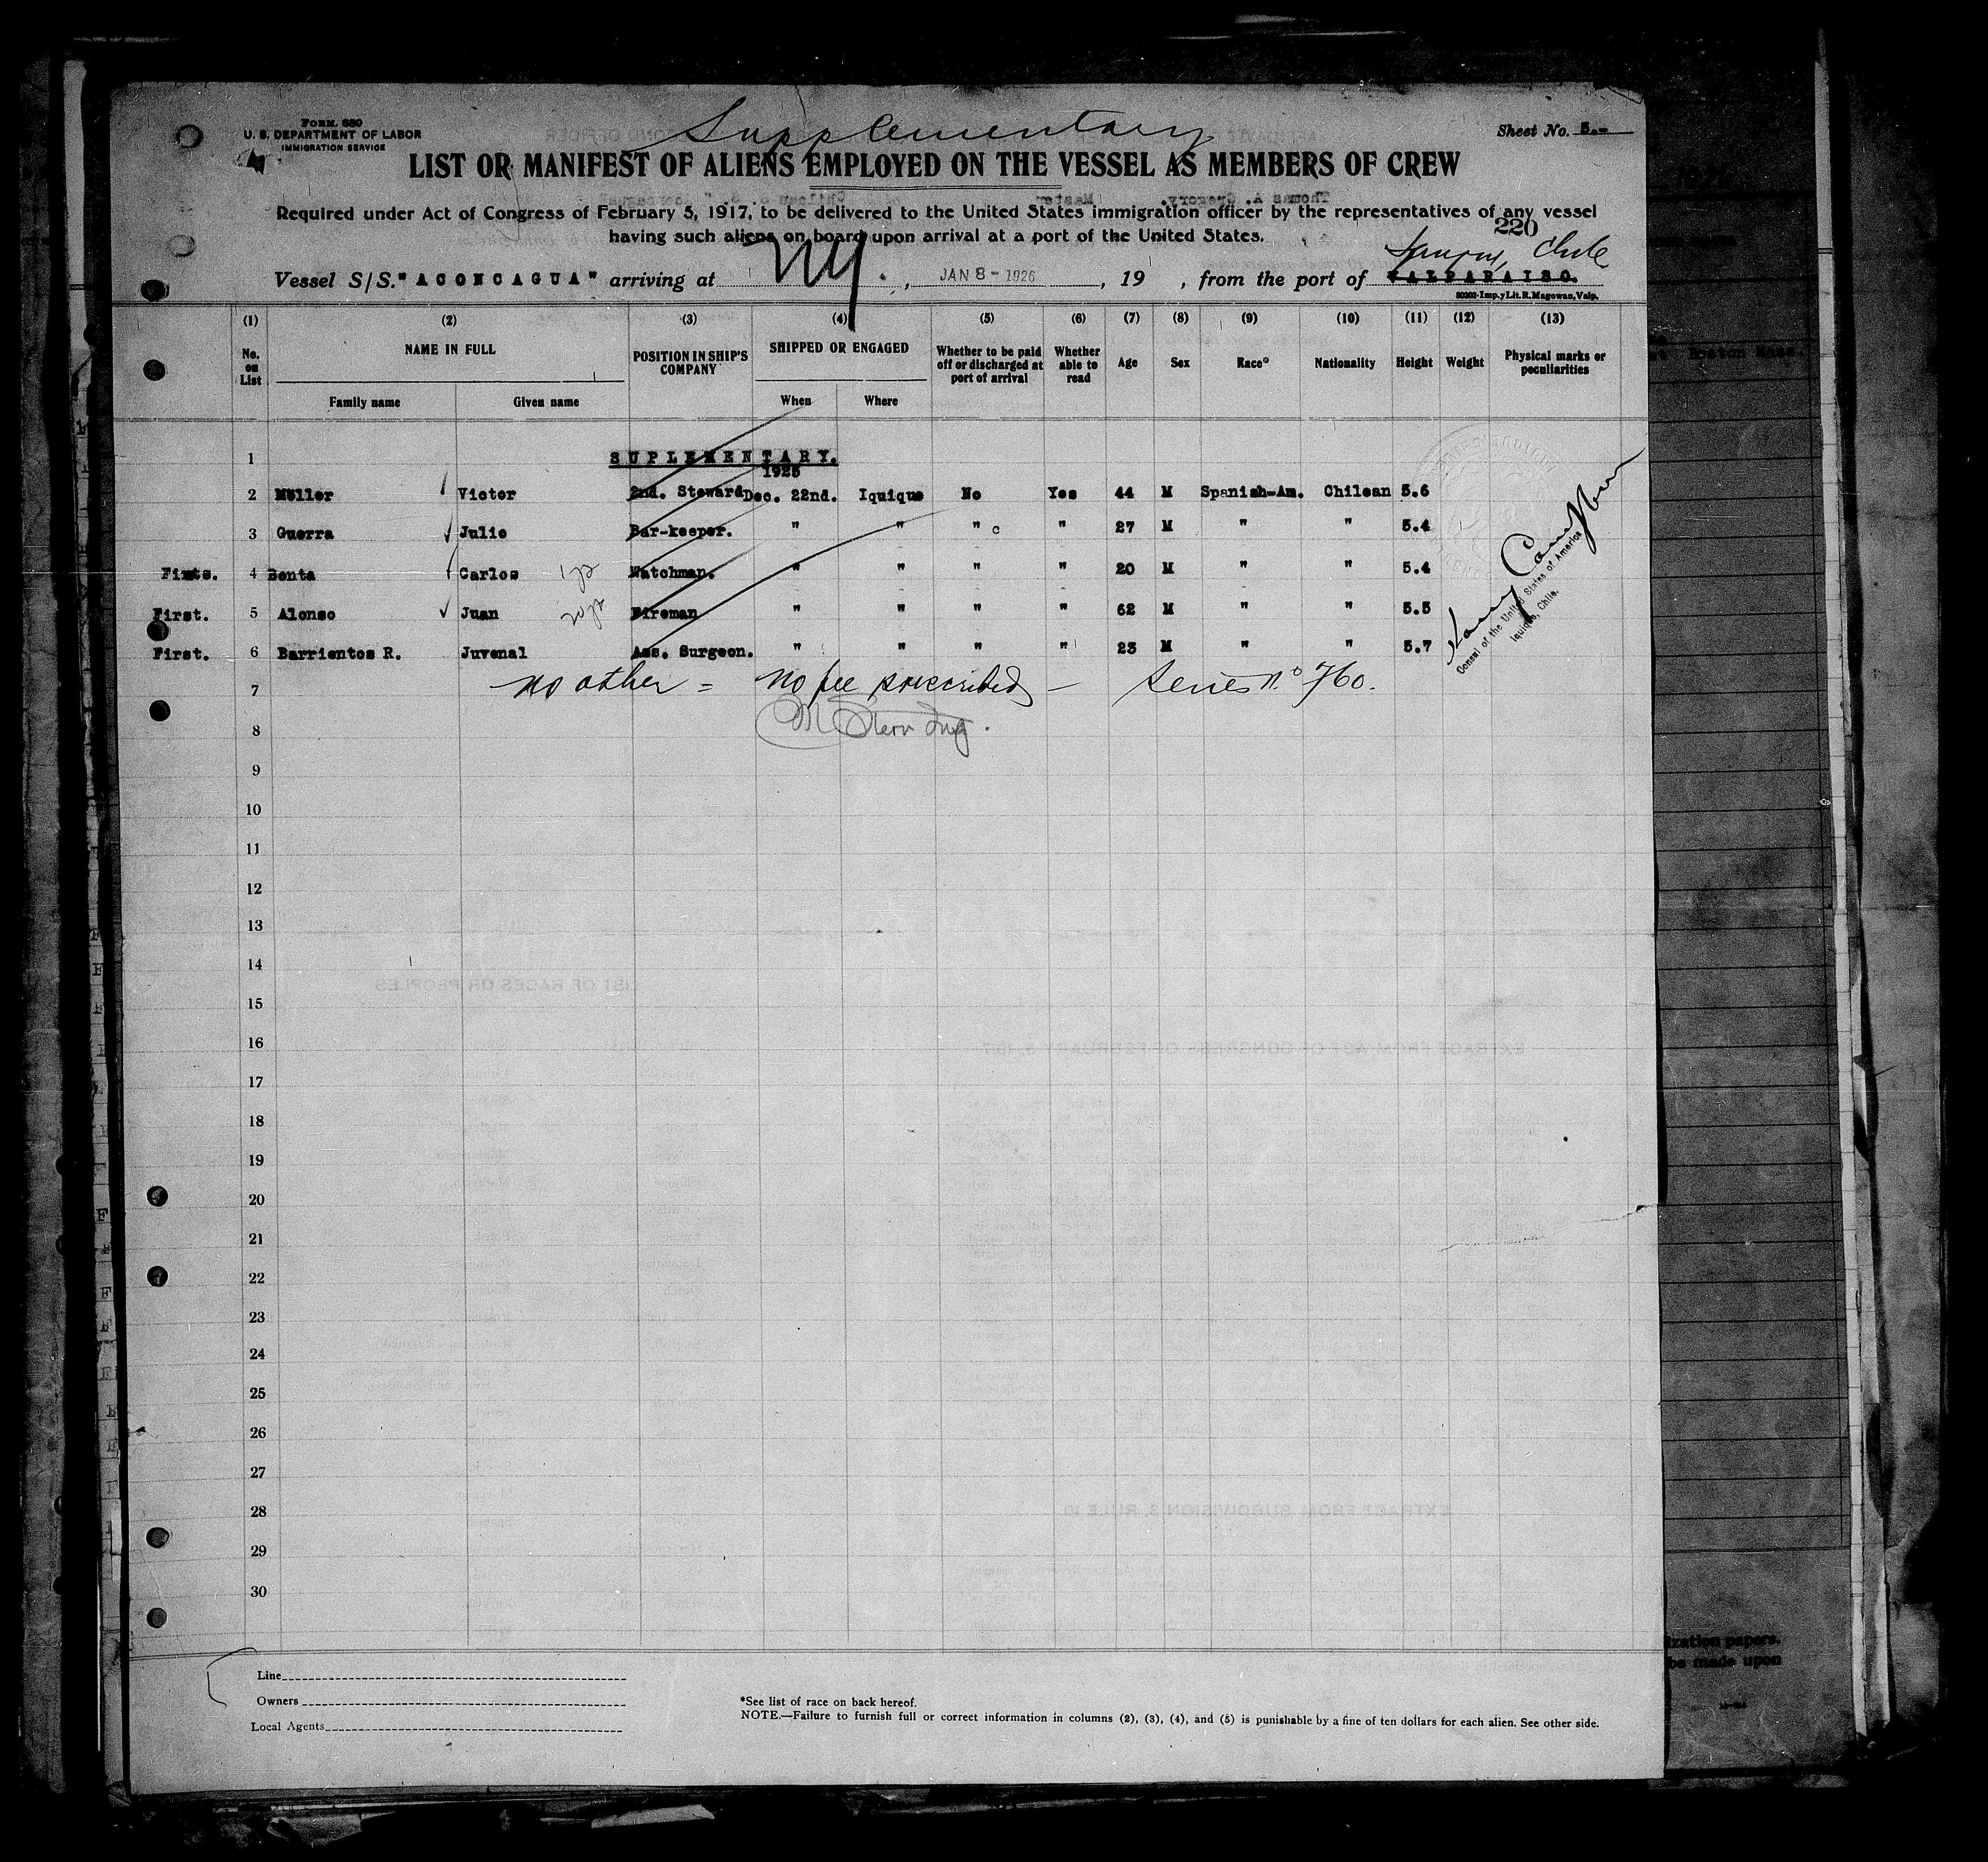 Supplementary
FORM. 680
U. S. DEPARTMENT OF LABOR
IMMIGRATION SERVICE
Sheet No. 5.-
LIST OR MANIFEST OF ALIENS EMPLOYED ON THE VESSEL AS MEMBERS OF CREW
Required under Act of Congress of February 5, 1917, to be delivered to the United States immigration officer by the representatives of any vessel
having such aliens on board upon arrival at a port of the United States.
220
Vessel S/S. "ACONCAGUA" arriving at NY. , JAN 8 - 1926 , 19 , from the port of VALPARAISO. Chile
80202-Imp.yLit.R.Magowan,Valp.
(1) (2) (3) (4) (5) (6) (7) (8) (9) (10) (11) (12) (13)
No. on List NAME IN FULL POSITION IN SHIP'S COMPANY SHIPPED OR ENGAGED Whether to be paid off or discharged at port of arrival Whether able to read Age Sex Race* Nationality Height Weight Physical marks or peculiarities
Family name Given name When Where
1 SUPLEMENTARY.
1925
2 Müller Victor 2nd. Steward Dec. 22nd. Iquique No Yes 44 M Spanish-Am. Chilean 5.6
3 Guerra Julio Bar-keeper. " " " c " 27 M " " 5.4
Firsts. 4 Benta Carlos Watchman. " " " " 20 M " " 5.4
First. 5 Alonso Juan Fireman " " " " 62 M " " 5.5
First. 6 Barrientos R. Juvenal Ass. Surgeon. " " " " 23 M " " 5.7
Consul of the United States of America
Iquique, Chile.
7 no other = No fee prescribed - Series No. 760.
8
9
10
11
12
13
14
15
16
17
18
19
20
21
22
23
24
25
26
27
28
29
30
Line
Owners
Local Agents
*See list of race on back hereof.
NOTE.—Failure to furnish full or correct information in columns (2), (3), (4), and (5) is punishable by a fine of ten dollars for each alien. See other side.
ization papers.
be made upon